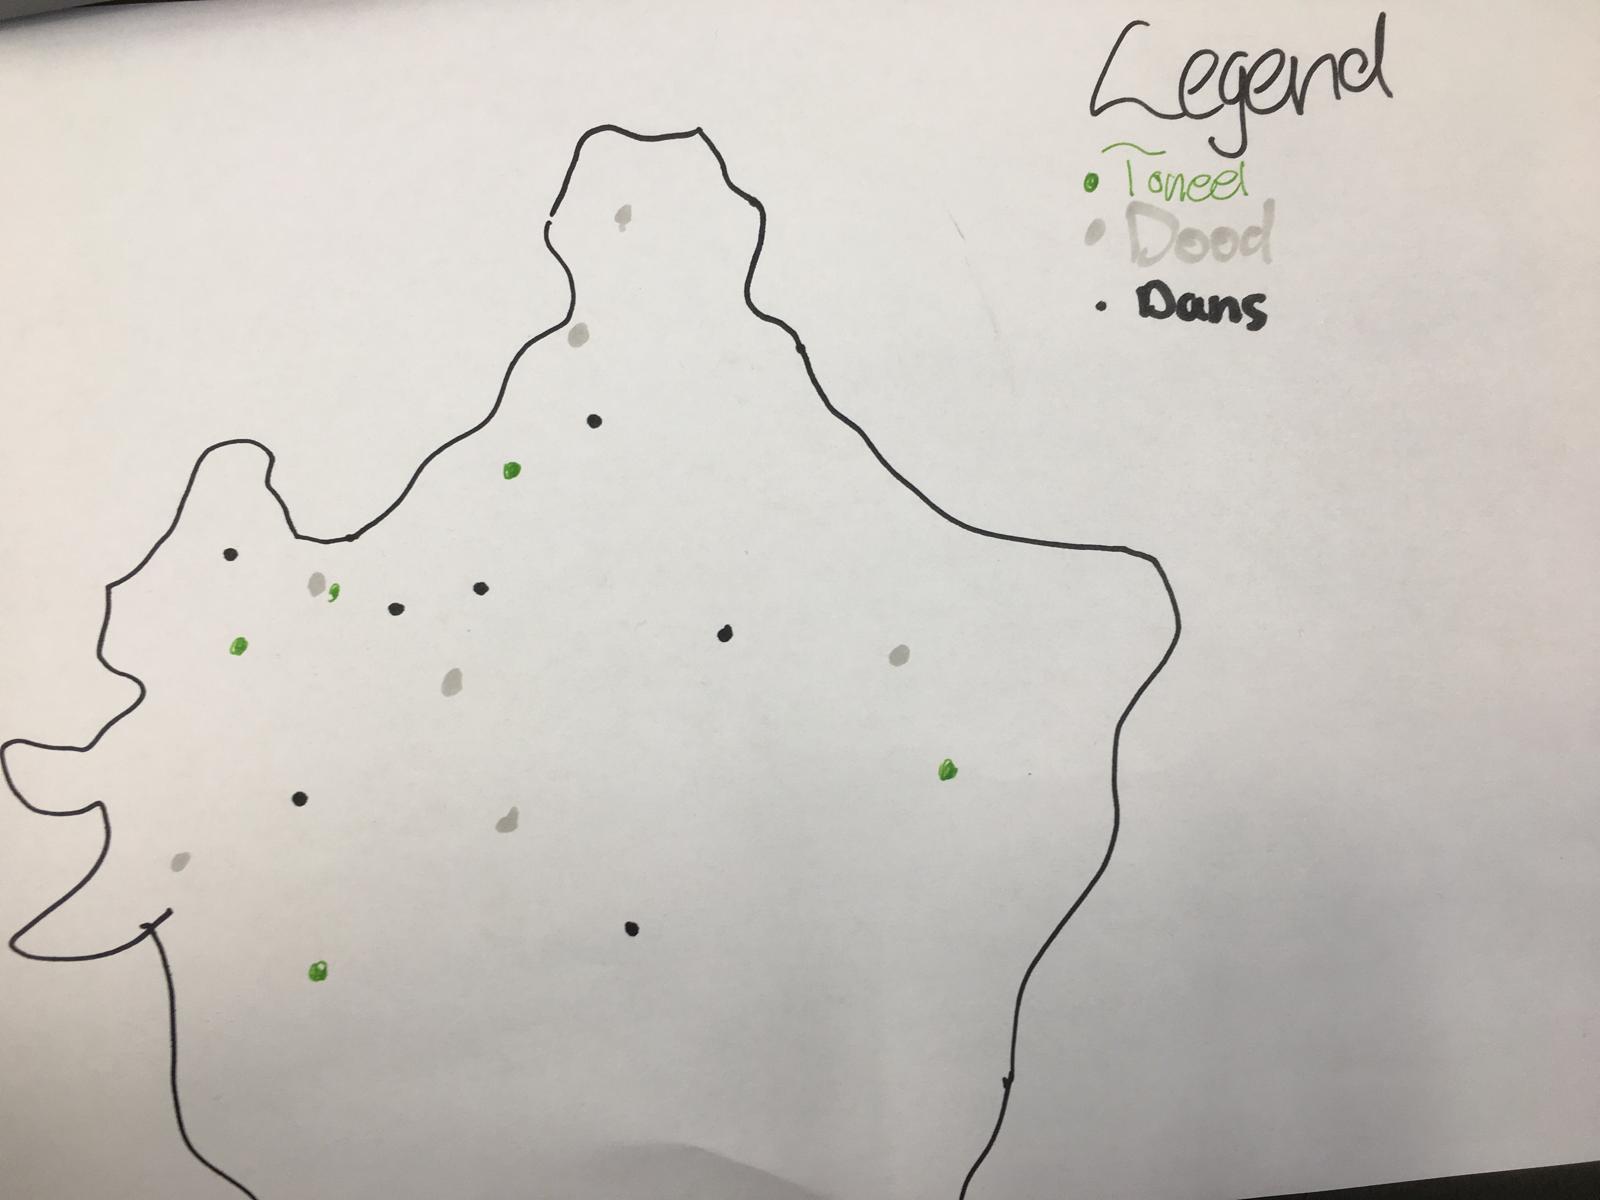 Legend
Toneel
Dood
Dans